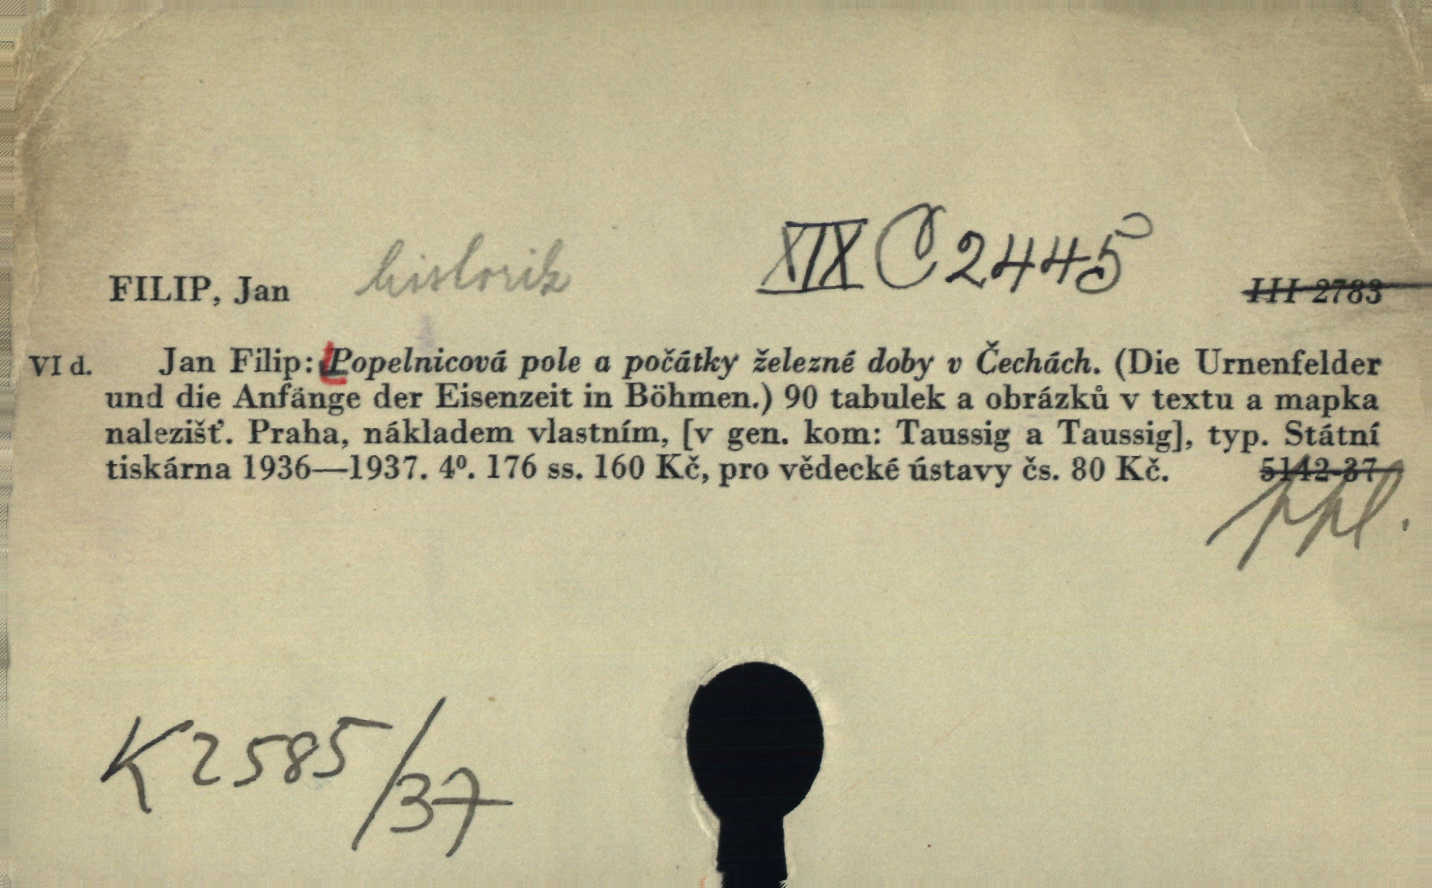 FILIP, Jan historik XIX C 2445 III 2783
VI d. Jan Filip: Popelnicová pole a počátky železné doby v Čechách. (Die Urnenfelder
und die Anfänge der Eisenzeit in Böhmen.) 90 tabulek a obrázků v textu a mapka
nalezišť. Praha, nákladem vlastním, [v gen. kom: Taussig a Taussig], typ. Státní
tiskárna 1936—1937. 4⁰. 176 ss. 160 Kč, pro vědecké ústavy čs. 80 Kč. 5142-37
ppl.
K 2585/37